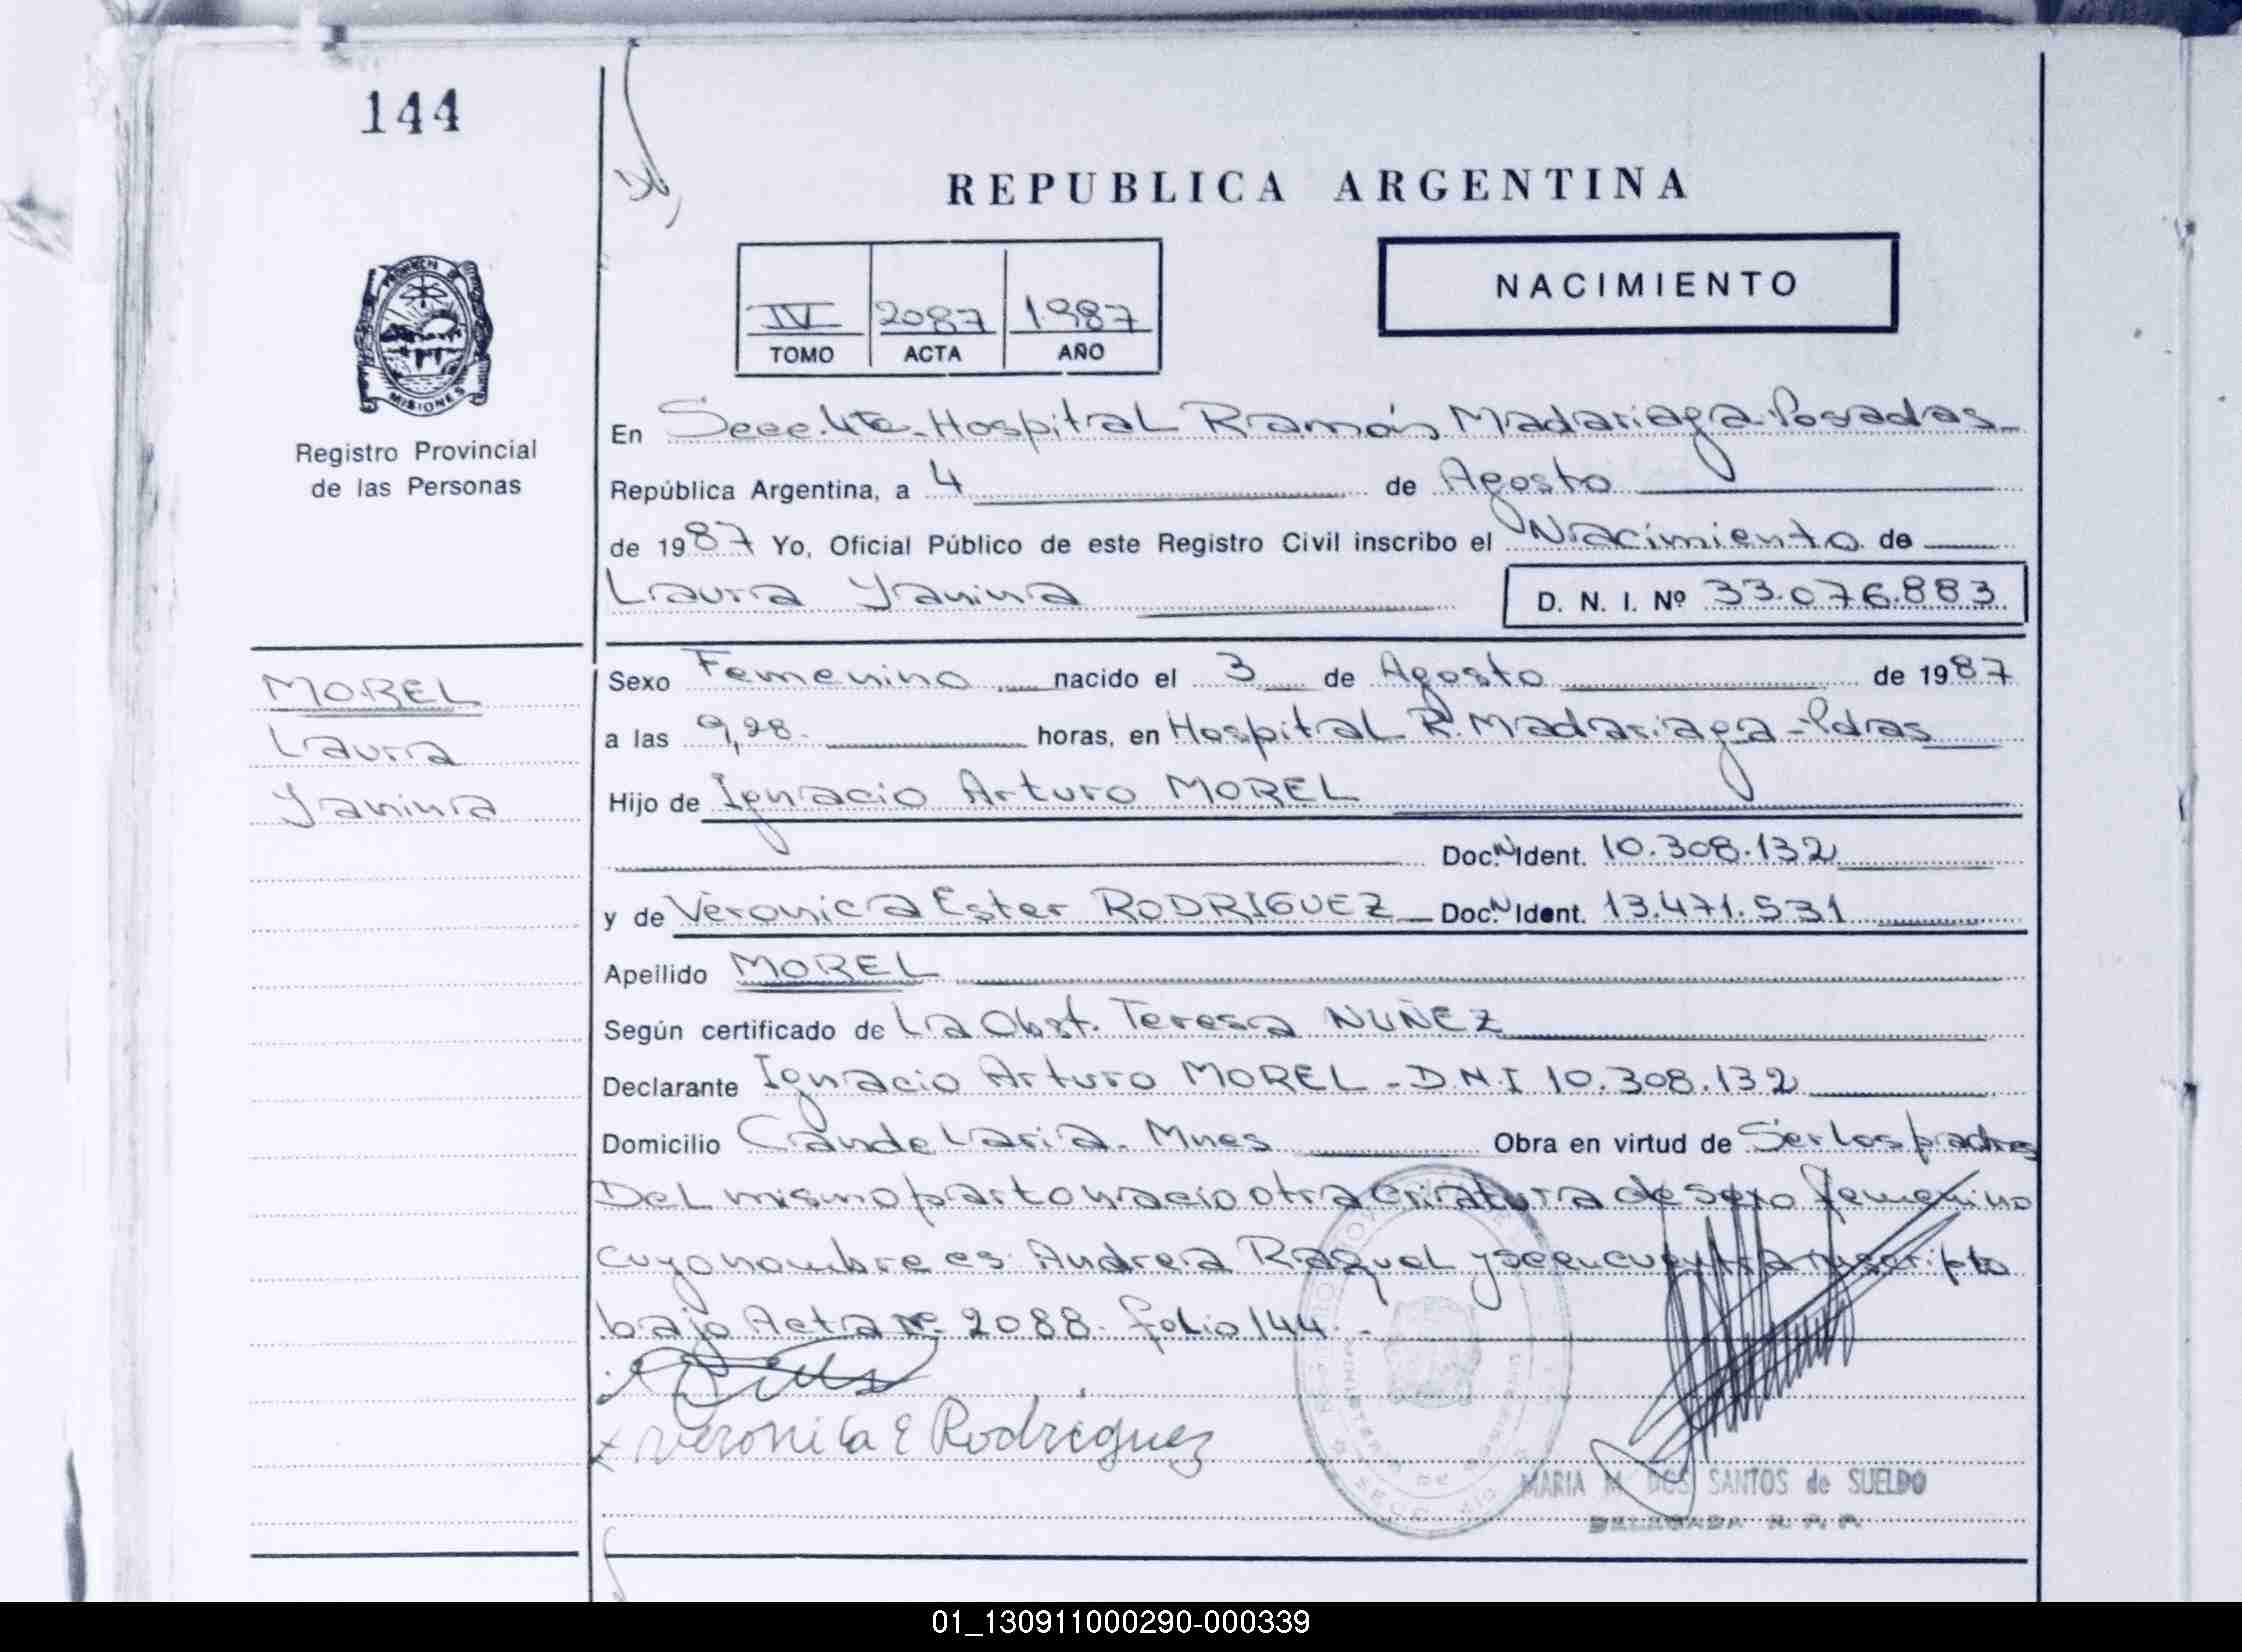 144
REPUBLICA ARGENTINA
NACIMIENTO
IV 2087 1987
TOMO ACTA AÑO
PROVINCIA
MISIONES
Registro Provincial
de las Personas
En Secc. 4ta. Hospital Ramón Madariaga-Posadas
República Argentina, a 4 de Agosto
de 1987 Yo, Oficial Público de este Registro Civil inscribo el Nacimiento de
Laura Yanina D. N. I. Nº 33.076.883
MOREL
Laura
Yanina
Sexo Femenino nacido el 3 de Agosto de 1987
a las 9,28. horas, en Hospital R. Madariaga-Pdras
Hijo de Ignacio Arturo MOREL
Doc. N Ident. 10.308.132
y de Verónica Ester RODRIGUEZ Doc. N Ident. 13.471.531
Apellido MOREL
Según certificado de La Obst. Teresa NUÑEZ
Declarante Ignacio Arturo MOREL - D.N.I 10.308.132
Domicilio Candelaria. Mnes Obra en virtud de Ser los padres
Del mismo parto nacio otra criatura de sexo femenino
cuyo nombre es: Andrea Raquel y se encuentra inscripto
bajo Acta Nº 2088. folio 144.-
Veronica E Rodriguez
MARIA M DOS SANTOS de SUELDO
DELEGADA R. P. P.
01_130911000290-000339